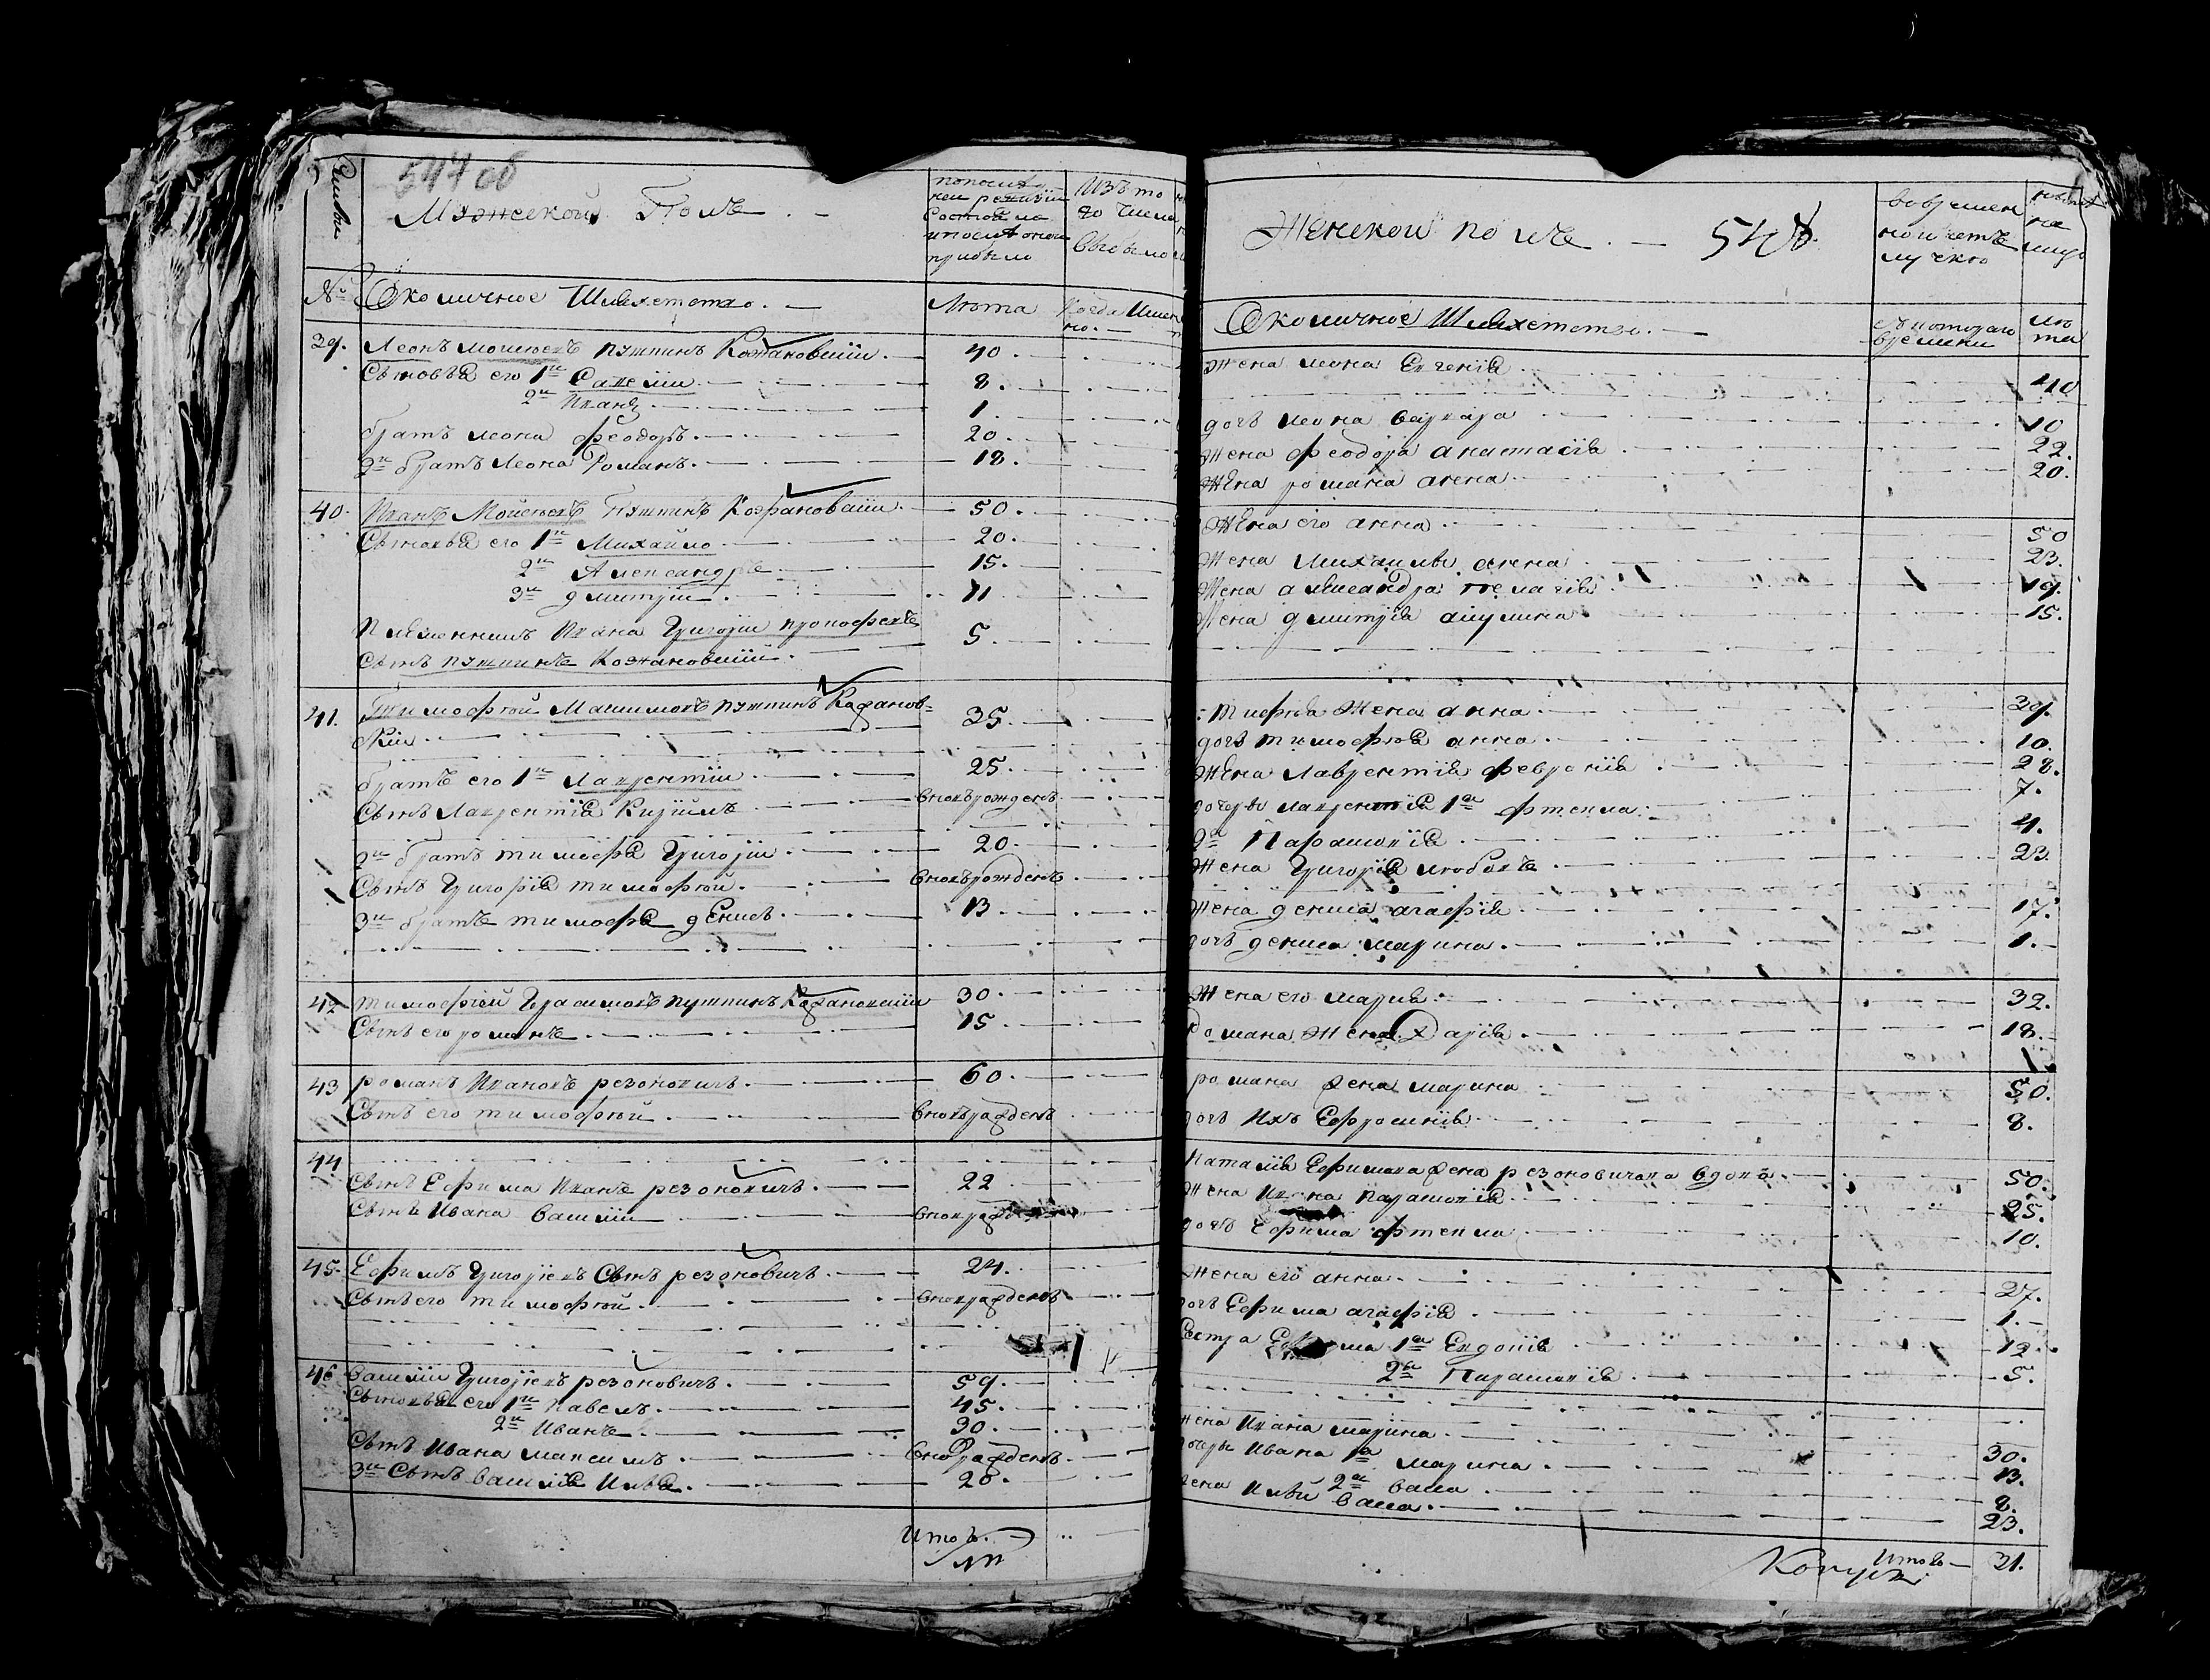 547 об
Семьи
Мужеской Полъ
по последней ревизии состояло и после оной прибыло
Изъ то го числа выбыло
№ Околичное Шляхетство
Лета
Когда Имен но
29. Леонъ Мойсеевъ Путинъ Кожановский 40
Сыновья его 1й Савелий 8
2й Иванъ 1
братъ Леона Феодоръ 20
2й братъ Леона Романъ 18
40. Иванъ Мойсеевъ Путинъ Кожановский 50
Сыновья его 1й Михайло 20
2й Александръ 15
3й дмитрий 11
Племенникъ Ивана Григорий прокофьевъ 5
Сынъ путинъ Кожановский
41. Тимофей Масимовъ путинъ Кажанов=
ский 35
братъ его 1й Лаврентий 25
Сынъ Лаврентия Кирилъ вновърожденъ
2й братъ тимофея Григорий 20
Сынъ Григория тимофей вновърожденъ
3й братъ тимофея денисъ 13
42 тимофей Герасимовъ путинъ Кажановский 30
Сынъ его романъ 15
43 романъ Ивановъ резоновичъ 60
Сынъ его тимофей вновърожденъ
44
Сынъ Ефима Иванъ резоновичъ 22
Сынъ Ивана василий
45. Ефимъ Григориевъ Сынъ резоновичъ 24
Сынъ его тимофей вноврожденъ
46 василий Григориевъ резоновичъ 59
Сыновья его 1й павелъ 45
2й Иванъ 30
Сынъ Ивана максимъ вноврожденъ
3й Сынъ василия Илья 20
Итого
Женской полъ 548
во временной отлучке
на лицо
Околичное Шляхетство
съ которого времени
ле та
Жена леона Евгения 40
дочь леона варвара 10
жена феодора анастасия 22
Жена романа анна 20
Жена его анна 50
Жена Михаила анна 23
Жена александра пелагия 19
Жена дмитрия акулина 15
Тимофея Жена анна 39
дочь тимофея анна 10
Жена Лаврентия феврония 28
дочери лаврентия 1я фтекла 7
2я Парасковия 4
жена Григория любовъ 23
Жена дениса агафия 17
дочь дениса марина 1
Жена его мария 32
Романа Жена Дария 18
романа жена марина 50
дочь Ихъ Ефросиния 8
Наталия Ефимова жена резоновичова вдова 50
Жена Ивана парасковия 25
дочь Ефима фтекла 10
Жена его анна 27
дочь Ефима агафия 1
Сестра Ефима 1я Евдокия 12
2я Парасковия 5
Жена Ивана марина 30
дочери Ивана 1я марина 13
2я васа 8
жена Ильи васа 23
Итого 31